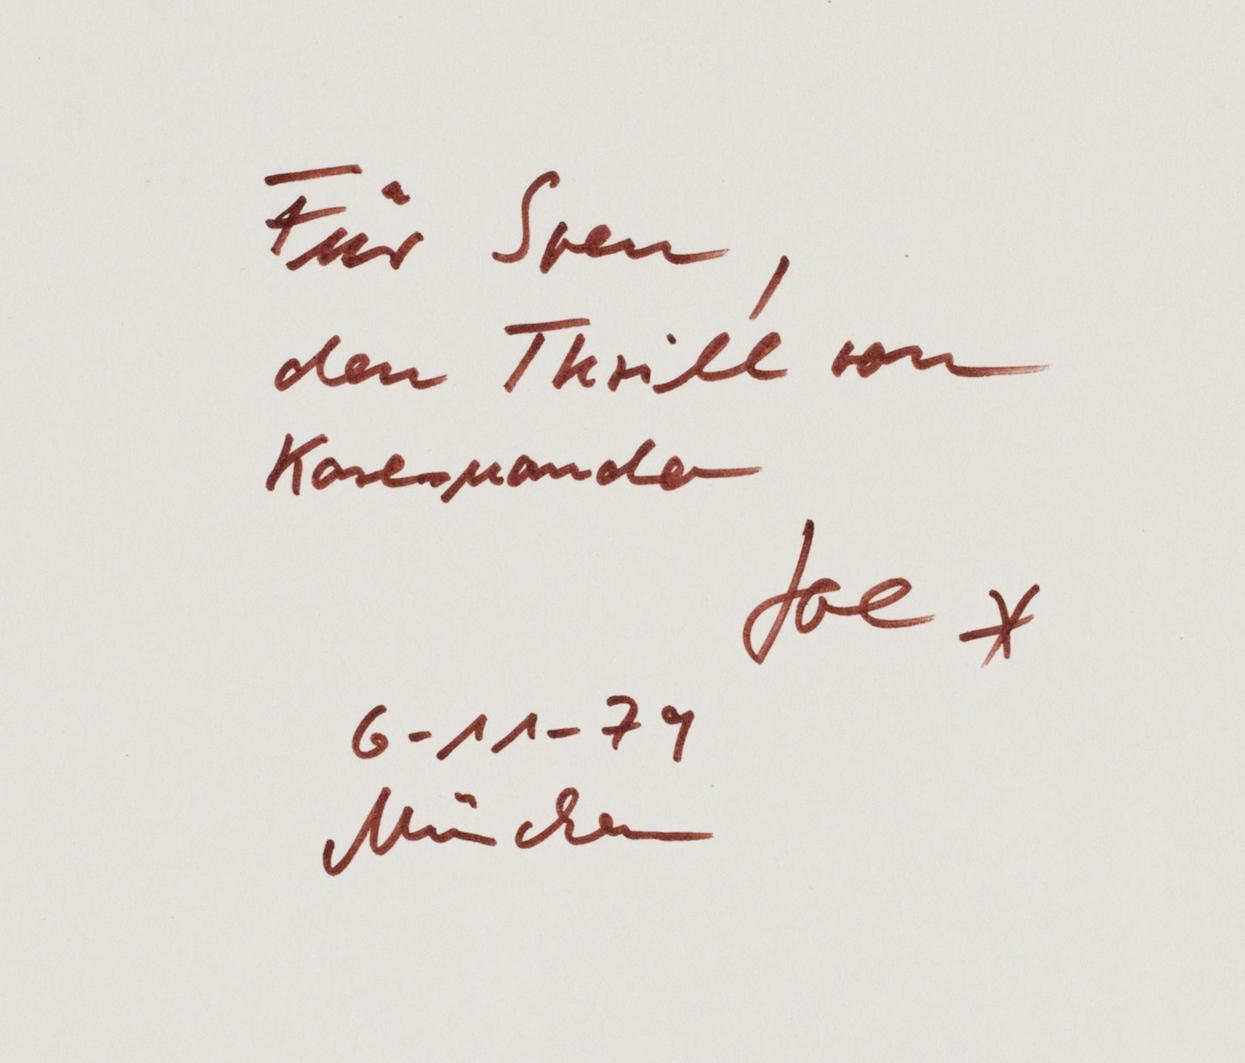 Für Sven,
den Thrill von
Joe *
6-11-79
München